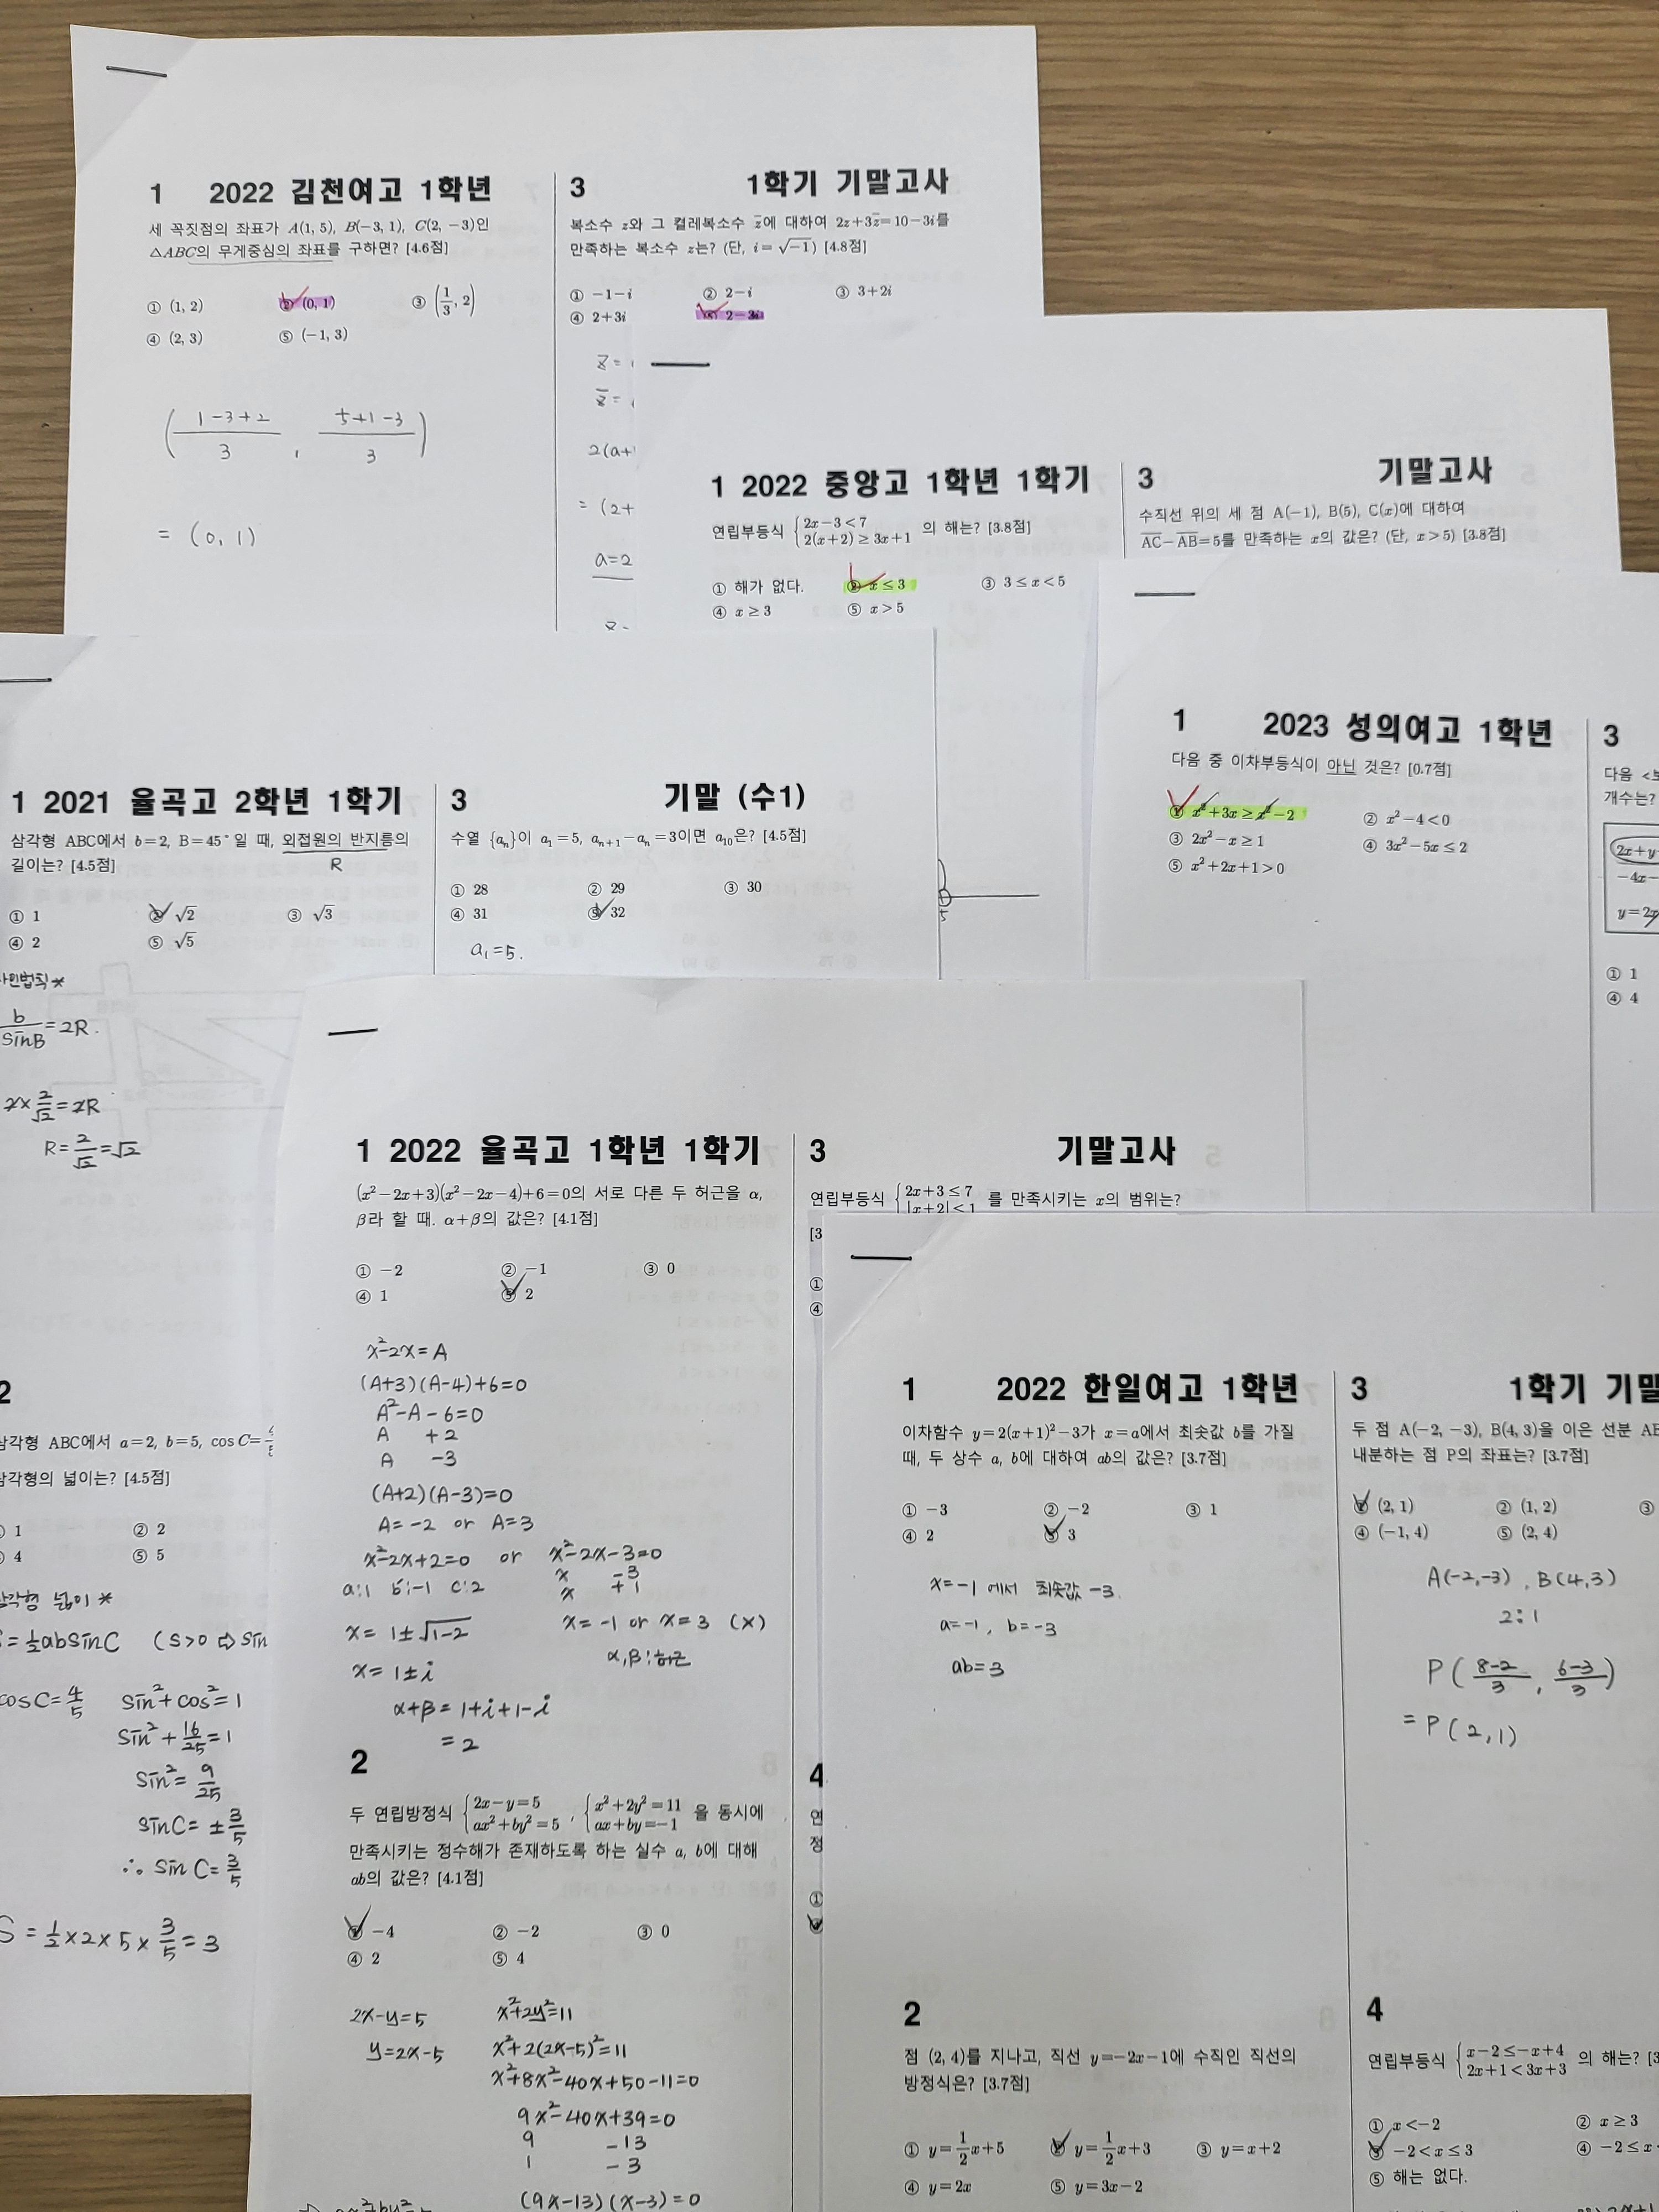 1 2022 김천여고 1학년
세 꼭짓점의 좌표가 A(1, 5), B(−3, 1), C(2, −3)인
△ABC의 무게중심의 좌표를 구하면? [4.6점]
① (1, 2) ② (0, 1) ③ (1/3, 2)
④ (2, 3) ⑤ (−1, 3)
( (1−3+2)/3 , (5+1−3)/3 )
= (0, 1)
3 1학기 기말고사
복소수 z와 그 켤레복소수 z̅에 대하여 2z+3z̅=10−3i를
만족하는 복소수 z는? (단, i=√−1) [4.8점]
① −1−i ② 2−i ③ 3+2i
④ 2+3i ⑤ 2−3i
z=
z̅=
2(a+
= (2+
a=2
1 2022 중앙고 1학년 1학기
연립부등식 { 2x−3<7
2(x+2)≥3x+1 의 해는? [3.8점]
① 해가 없다. ② x≤3 ③ 3≤x<5
④ x≥3 ⑤ x>5
3 기말고사
수직선 위의 세 점 A(−1), B(5), C(x)에 대하여
A̅C̅−A̅B̅=5를 만족하는 x의 값은? (단, x>5) [3.8점]
5
1 2023 성의여고 1학년
다음 중 이차부등식이 아닌 것은? [0.7점]
① x²+3x≥x²−2 ② x²−4<0
③ 2x²−x≥1 ④ 3x²−5x≤2
⑤ x²+2x+1>0
3
다음
개수는?
2x+y
−4x−
y=2x
① 1
④ 4
1 2021 율곡고 2학년 1학기
삼각형 ABC에서 b=2, B=45°일 때, 외접원의 반지름의
길이는? [4.5점]
R
① 1 ② √2 ③ √3
④ 2 ⑤ √5
인법칙*
b/sinB=2R.
2×2/√2=2R
R=2/√2=√2
2
삼각형 ABC에서 a=2, b=5, cosC=4/5
삼각형의 넓이는? [4.5점]
① 1 ② 2
④ 4 ⑤ 5
삼각형 넓이 *
=½absinC (S>0 ⇨ sin
cosC=4/5 sin²+cos²=1
sin²+16/25=1
sin²=9/25
sinC=±3/5
∴ sinC=3/5
S=½×2×5×3/5=3
3 기말 (수1)
수열 {aₙ}이 a₁=5, aₙ₊₁−aₙ=3이면 a₁₀은? [4.5점]
① 28 ② 29 ③ 30
④ 31 ⑤ 32
a₁=5.
1 2022 율곡고 1학년 1학기
(x²−2x+3)(x²−2x−4)+6=0의 서로 다른 두 허근을 α,
β라 할 때. α+β의 값은? [4.1점]
① −2 ② −1 ③ 0
④ 1 ⑤ 2
x²−2x=A
(A+3)(A−4)+6=0
A²−A−6=0
A +2
A −3
(A+2)(A−3)=0
A=−2 or A=3
x²−2x+2=0 or x²−2x−3=0
x −3
x +1
a:1 b':−1 c:2
x=1±√1−2 x=−1 or x=3 (x)
x=1±i α,β:허근
α+β=1+i+1−i
=2
2
두 연립방정식 { 2x−y=5
ax²+by²=5 , { x²+2y²=11
ax+by=−1 을 동시에
만족시키는 정수해가 존재하도록 하는 실수 a, b에 대해
ab의 값은? [4.1점]
① −4 ② −2 ③ 0
④ 2 ⑤ 4
2x−y=5 x²+2y²=11
y=2x−5 x²+2(2x−5)²=11
x²+8x²−40x+50−11=0
9x²−40x+39=0
9 −13
1 −3
(9x−13)(x−3)=0
3 기말고사
연립부등식 { 2x+3≤7
|x+2|<1 를 만족시키는 x의 범위는?
[3
①
④
4
연
정
①
1 2022 한일여고 1학년
이차함수 y=2(x+1)²−3가 x=a에서 최솟값 b를 가질
때, 두 상수 a, b에 대하여 ab의 값은? [3.7점]
① −3 ② −2 ③ 1
④ 2 ⑤ 3
x=−1 에서 최솟값 −3.
a=−1, b=−3
ab=3
2
점 (2, 4)를 지나고, 직선 y=−2x−1에 수직인 직선의
방정식은? [3.7점]
① y=½x+5 ② y=½x+3 ③ y=x+2
④ y=2x ⑤ y=3x−2
3 1학기 기말
두 점 A(−2, −3), B(4, 3)을 이은 선분 AB
내분하는 점 P의 좌표는? [3.7점]
① (2, 1) ② (1, 2) ③
④ (−1, 4) ⑤ (2, 4)
A(−2,−3), B(4,3)
2:1
P( (8−2)/3 , (6−3)/3 )
=P(2,1)
4
연립부등식 { x−2≤−x+4
2x+1<3x+3 의 해는? [3
① x<−2 ② x≥3
③ −2<x≤3 ④ −2≤x
⑤ 해는 없다.